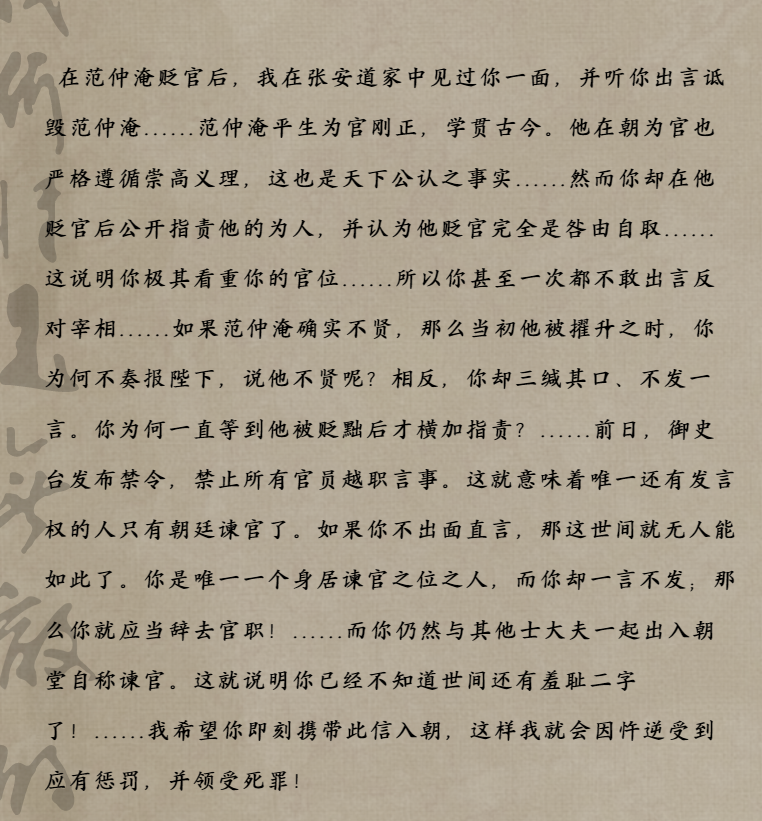 在范仲淹贬官后，我在张安道家中见过你一面，并听你出言诋
毁范仲淹......范仲淹平生为官刚正，学贯古今。他在朝为官也
严格遵循崇高义理，这也是天下公认之事实......然而你却在他
贬官后公开指责他的为人，并认为他贬官完全是咎由自取......
这说明你极其看重你的官位......所以你甚至一次都不敢出言反
对宰相......如果范仲淹确实不贤，那么当初他被擢升之时，你
为何不奏报陛下，说他不贤呢？相反，你却三缄其口、不发一
言。你为何一直等到他被贬黜后才横加指责？......前日，御史
台发布禁令，禁止所有官员越职言事。这就意味着唯一还有发言
权的人只有朝廷谏官了。如果你不出面直言，那这世间就无人能
如此了。你是唯一一个身居谏官之位之人，而你却一言不发；那
么你就应当辞去官职！......而你仍然与其他士大夫一起出入朝
堂自称谏官。这就说明你已经不知道世间还有羞耻二字
了！......我希望你即刻携带此信入朝，这样我就会因忤逆受到
应有惩罚，并领受死罪！